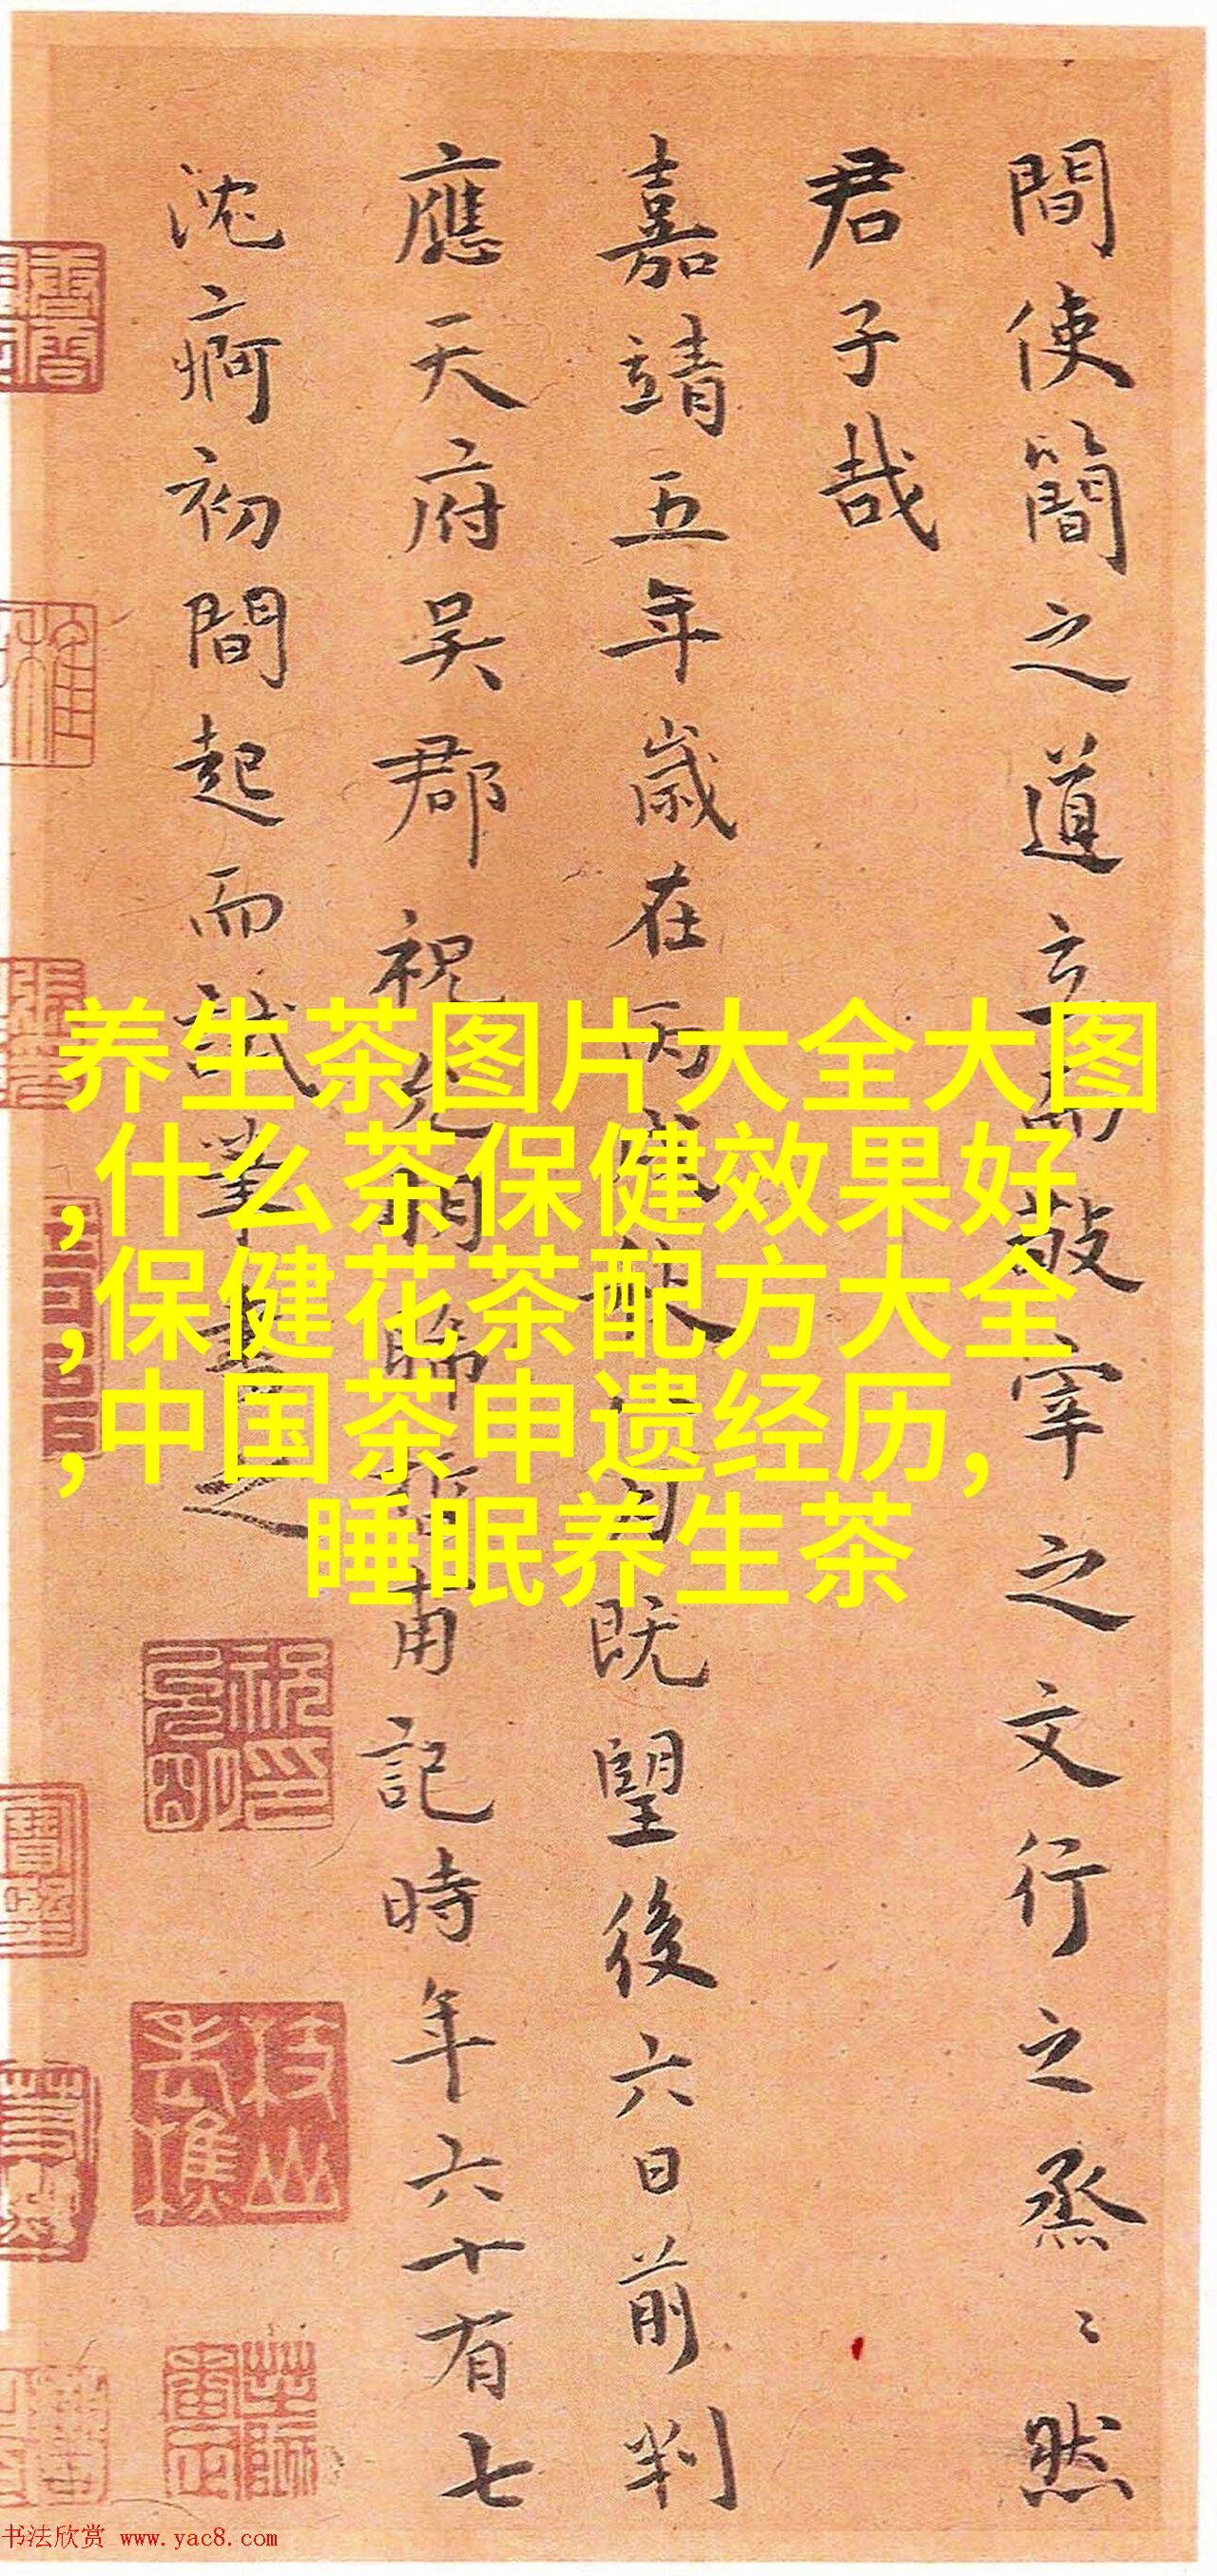 間使簡之道立而敬宰之文行之烝〻然
君子哉
嘉靖五年歲在丙戌秋七月既望後六日前判
應天府吴郡祝允明晞哲甫記時年六十有七
沈痾初間起而試筆書之
养生茶图片大全大图
,什么茶保健效果好
,保健花茶配方大全
,中国茶申遗经历,
睡眠养生茶
书法欣赏 www.yac8.com